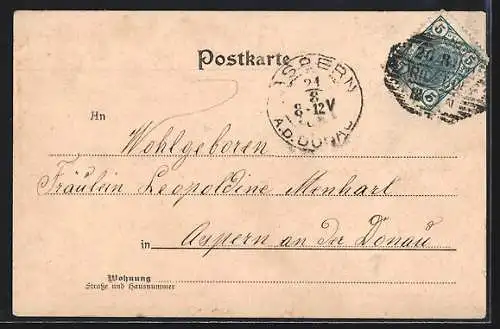 Postkarte
5 5
5
ASPERN
21
8
8-12V
A.D. DONAU
An
Wohlgeboren
Fräulein Leopoldine Menhart
in Aspern an der Donau
Wohnung
Straße und Hausnummer